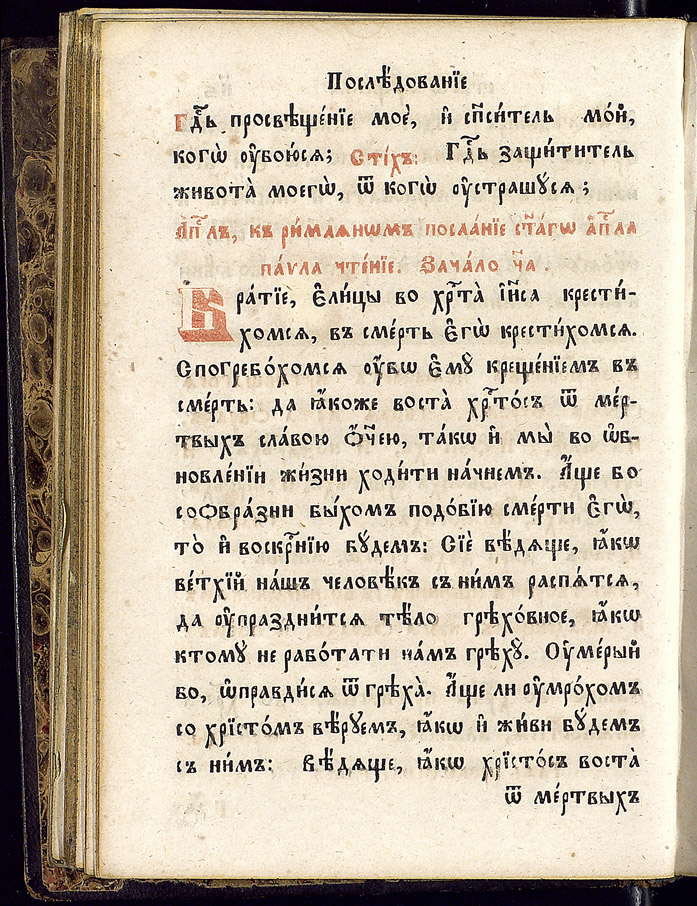 Послѣ́дованїе
Гдⷭ҇ь просвѣще́нїе моѐ, и҆ сп҃си́тель мо́й,
когѡ̀ ᲂу҆бою́сѧ; Сті́хъ: Гдⷭ҇ь защи́титель
живота̀ моегѡ̀, ѿ когѡ̀ ᲂу҆страшꙋ́сѧ;
А҆пⷭ҇лъ, къ ри́млѧнѡмъ посла́нїе ст҃а́гѡ а҆пⷭ҇ла
па́ѵла чте́нїе. Зача́ло ч҃а.
Бра́тїе, є҆ли́цы во хрⷭ҇та̀ і҆и҃са крести́-
хомсѧ, въ сме́рть є҆гѡ̀ крести́хомсѧ.
Спогребо́хомсѧ ᲂу҆́бѡ є҆мꙋ̀ креще́нїемъ въ
сме́рть: да ꙗ҆́коже воста̀ хрⷭ҇то́съ ѿ ме́р-
твыхъ сла́вою ѻ҆́ч҃ею, та́кѡ и҆ мы̀ во ѡ҆б-
новле́нїи жи́зни ходи́ти на́чнемъ. А҆́ще бо
соѻбра́зни бы́хомъ подо́бїю сме́рти є҆гѡ̀,
то̀ и҆ воскрⷭ҇нїю бꙋ́демъ: Сїѐ вѣ́дѧще, ꙗ҆́кѡ
ве́тхїй на́шъ человѣ́къ съ ни́мъ распѧ́тсѧ,
да ᲂу҆праздни́тсѧ тѣ́ло грѣхо́вное, ꙗ҆́кѡ
ктомꙋ̀ не рабо́тати на́мъ грѣхꙋ̀. Оу҆ме́рый
бо, ѡ҆правди́сѧ ѿ грѣха̀. А҆́ще ли ᲂу҆мро́хомъ
со хрїсто́мъ вѣ́рꙋемъ, ꙗ҆́кѡ и҆ жи́ви бꙋ́демъ
съ ни́мъ: Вѣ́дѧще, ꙗ҆́кѡ хрїсто́съ воста̀
ѿ ме́ртвыхъ